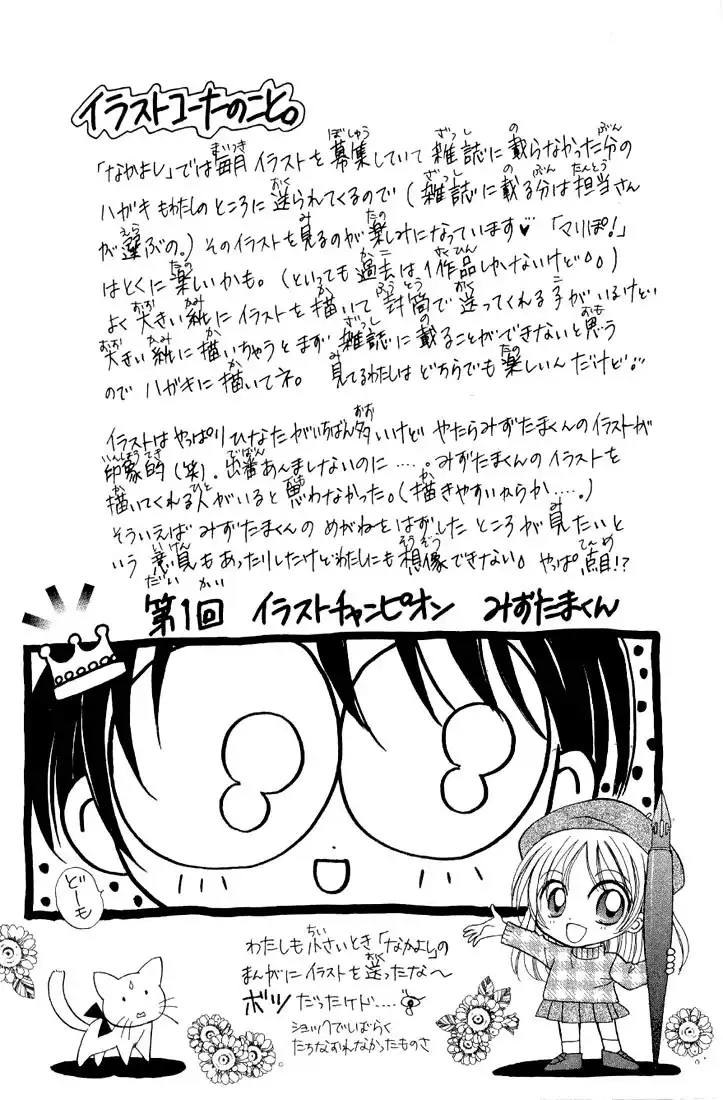 イラストコーナーのこと。
「なかよし」では毎月イラストを募集していて雑誌に載らなかった分の
ハガキもわたしのところに送られてくるので(雑誌に載る分は担当さん
が選ぶの。)そのイラストを見るのが楽しみになっています♥「マリぽ!」
はとくに楽しいかも。(といっても過去は1作品しかないけど。。)
よく大きい紙にイラストを描いて封筒で送ってくれる子がいるけど
大きい紙に描いちゃうとまず雑誌に載ることができないと思う
のでハガキに描いてネ。見てるわたしはどちらでも楽しいんだけど
イラストはやっぱりひなたがいちばん多いけどやたらみずたまくんのイラストが
印象的(笑)。出番あんましないのに……。みずたまくんのイラストを
描いてくれる人がいると思わなかった。(描きやすいからか……。)
そういえばみずたまくんのめがねをはずしたところが見たいと
いう意見もあったりしたけどわたしにも想像できない。やっぱ点目!?
第1回 イラストチャンピオン みずたまくん
どーも
わたしも小さいとき「なかよし」の
まんがにイラストを送ったな〜
ボツだったけど……
ショックでしばらく
たちなおれなかったものさ